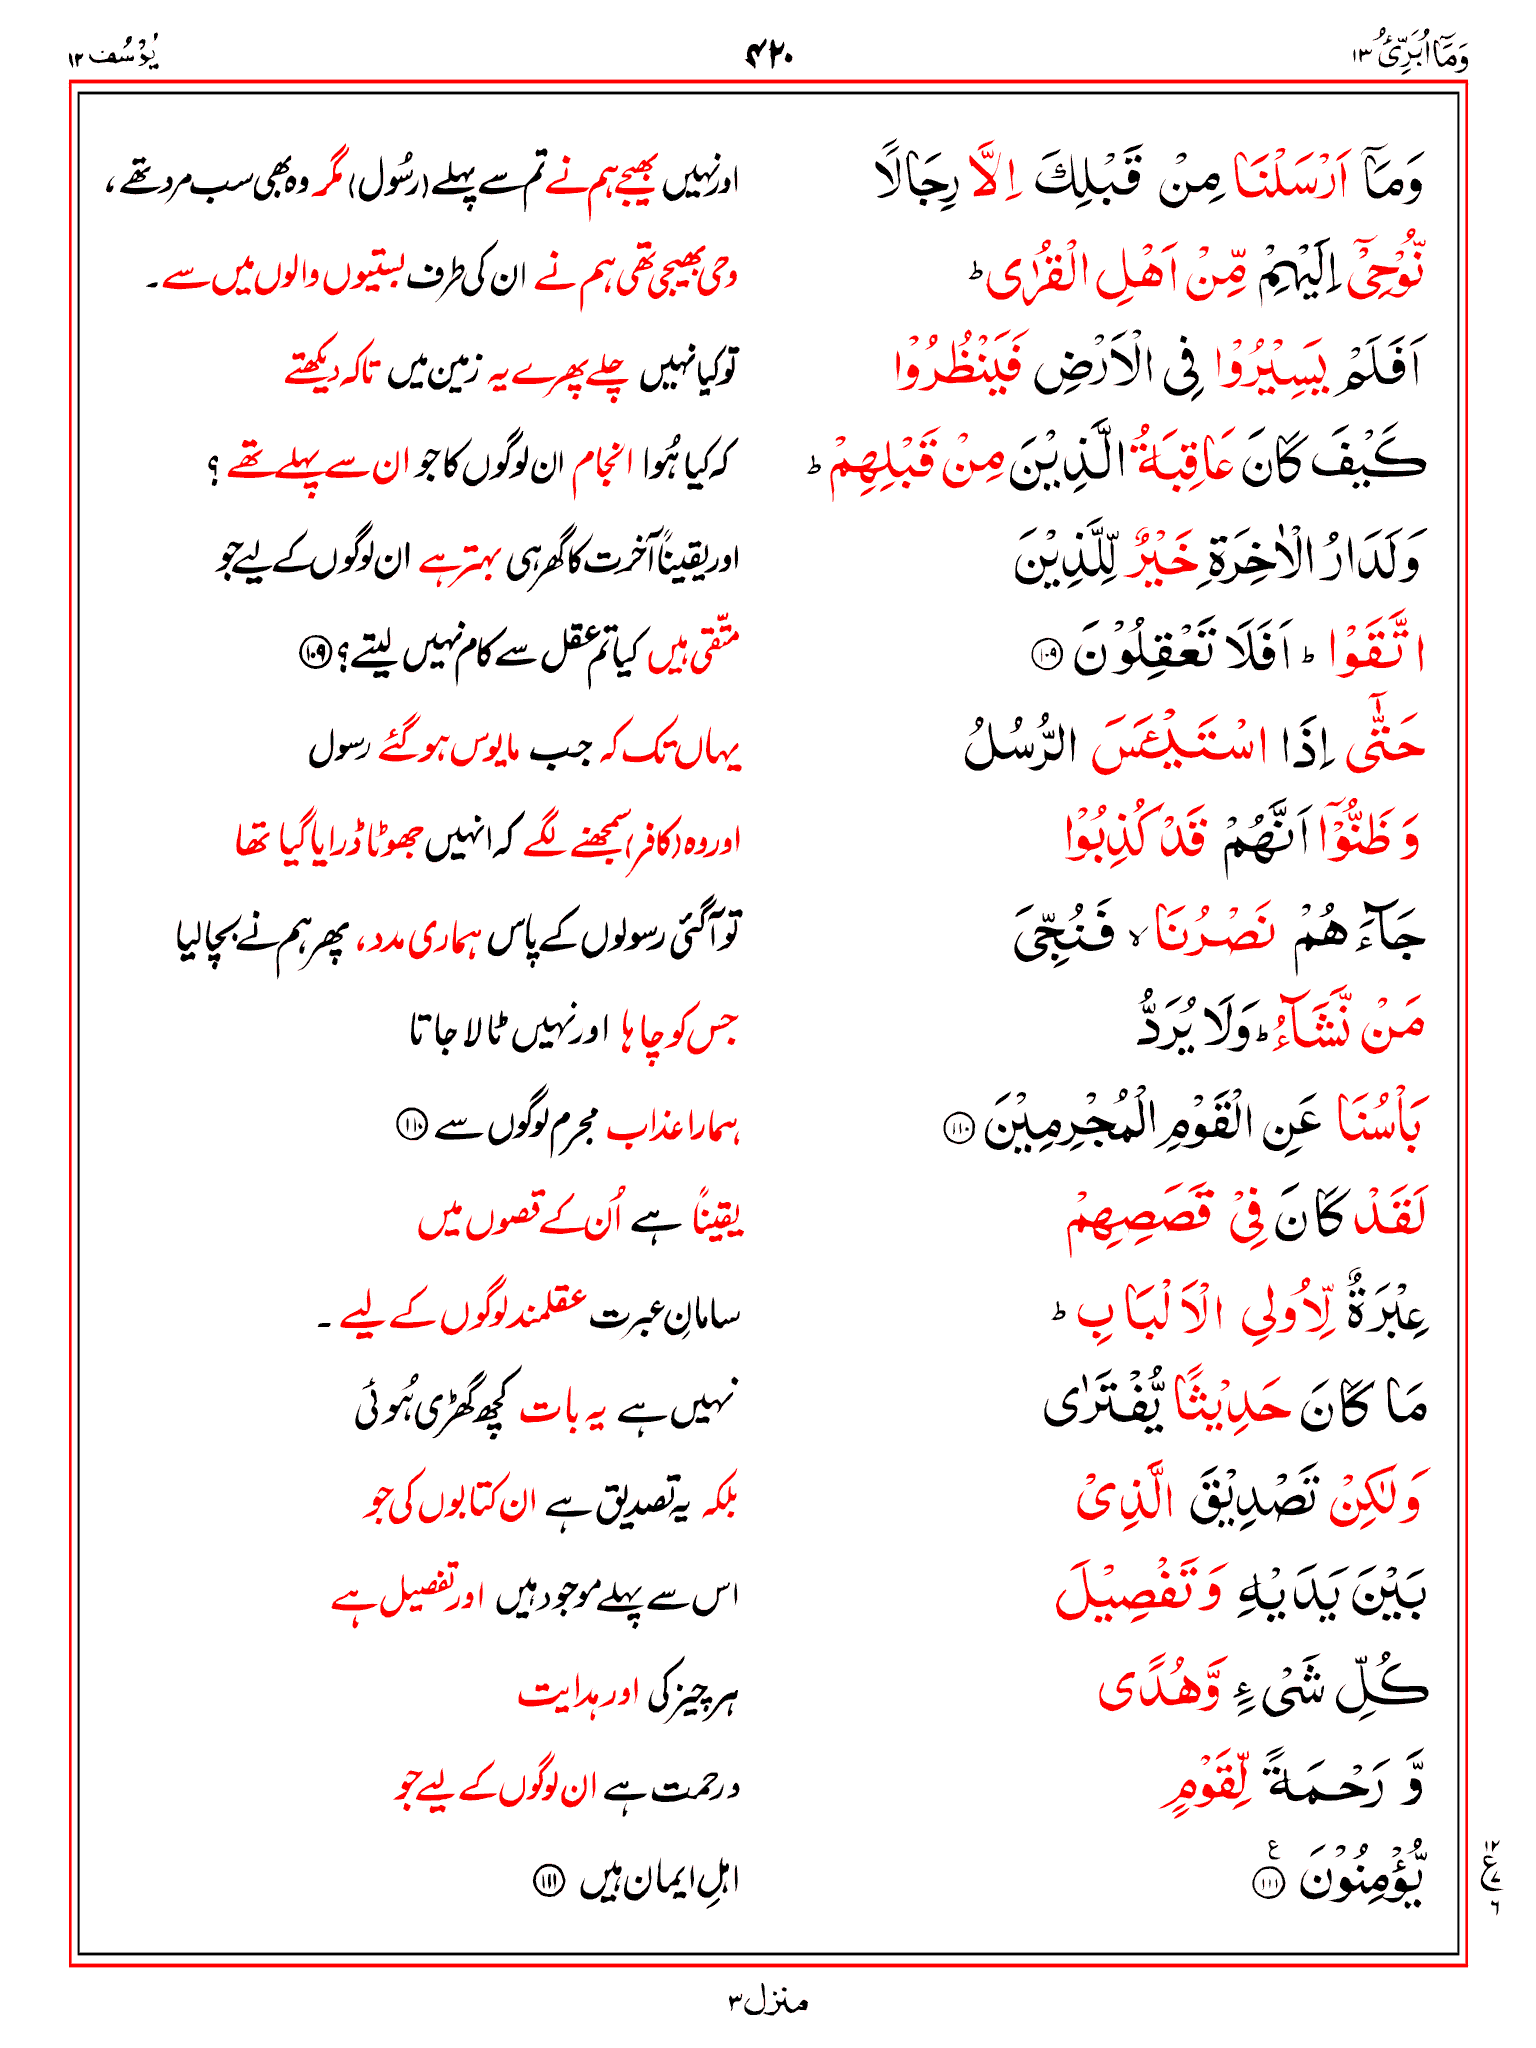 وَمَآ اُبَرِّئُ ۱۳
۴۲۰
یُوْسُف ۱۲
وَمَآ اَرْسَلْنَا مِنْ قَبْلِكَ اِلَّا رِجَالًا
اور نہیں بھیجے ہم نے تم سے پہلے (رسُول) مگر وہ بھی سب مرد تھے،
نُّوْحِیْۤ اِلَیْهِمْ مِّنْ اَهْلِ الْقُرٰی ؕ
وحی بھیجی تھی ہم نے ان کی طرف بستیوں والوں میں سے۔
اَفَلَمْ یَسِیْرُوْا فِی الْاَرْضِ فَیَنْظُرُوْا
تو کیا نہیں چلے پھرے یہ زمین میں تاکہ دیکھتے
كَیْفَ كَانَ عَاقِبَةُ الَّذِیْنَ مِنْ قَبْلِهِمْ ؕ
کہ کیا ہُوا انجام ان لوگوں کا جو ان سے پہلے تھے ؟
وَلَدَارُ الْاٰخِرَةِ خَیْرٌ لِّلَّذِیْنَ
اور یقیناً آخرت کا گھر ہی بہتر ہے ان لوگوں کے لیے جو
اتَّقَوْا ؕ اَفَلَا تَعْقِلُوْنَ ۱۰۹
متّقی ہیں کیا تم عقل سے کام نہیں لیتے؟ ۱۰۹
حَتّٰۤی اِذَا اسْتَیْـَٔسَ الرُّسُلُ
یہاں تک کہ جب مایوس ہو گئے رسول
وَظَنُّوْۤا اَنَّهُمْ قَدْ كُذِبُوْا
اور وہ (کافر) سمجھنے لگے کہ انہیں جھوٹا ڈرایا گیا تھا
جَآءَهُمْ نَصْرُنَا ۙ فَنُجِّیَ
تو آگئی رسولوں کے پاس ہماری مدد، پھر ہم نے بچا لیا
مَنْ نَّشَآءُ ؕ وَلَا یُرَدُّ
جس کو چاہا اور نہیں ٹالا جاتا
بَاْسُنَا عَنِ الْقَوْمِ الْمُجْرِمِیْنَ ۱۱۰
ہمارا عذاب مجرم لوگوں سے ۱۱۰
لَقَدْ كَانَ فِیْ قَصَصِهِمْ
یقیناً ہے اُن کے قصوں میں
عِبْرَةٌ لِّاُولِی الْاَلْبَابِ ؕ
سامانِ عبرت عقلمند لوگوں کے لیے ۔
مَا كَانَ حَدِیْثًا یُّفْتَرٰی
نہیں ہے یہ بات کچھ گھڑی ہُوئی
وَلٰكِنْ تَصْدِیْقَ الَّذِیْ
بلکہ یہ تصدیق ہے ان کتابوں کی جو
بَیْنَ یَدَیْهِ وَتَفْصِیْلَ
اس سے پہلے موجود ہیں اور تفصیل ہے
كُلِّ شَیْءٍ وَّهُدًی
ہر چیز کی اور ہدایت
وَّ رَحْمَةً لِّقَوْمٍ
و رحمت ہے ان لوگوں کے لیے جو
یُّؤْمِنُوْنَ ۱۱۱ ع
اہلِ ایمان ہیں ۱۱۱
۱۲
ع ۷
۶
منزل ۳